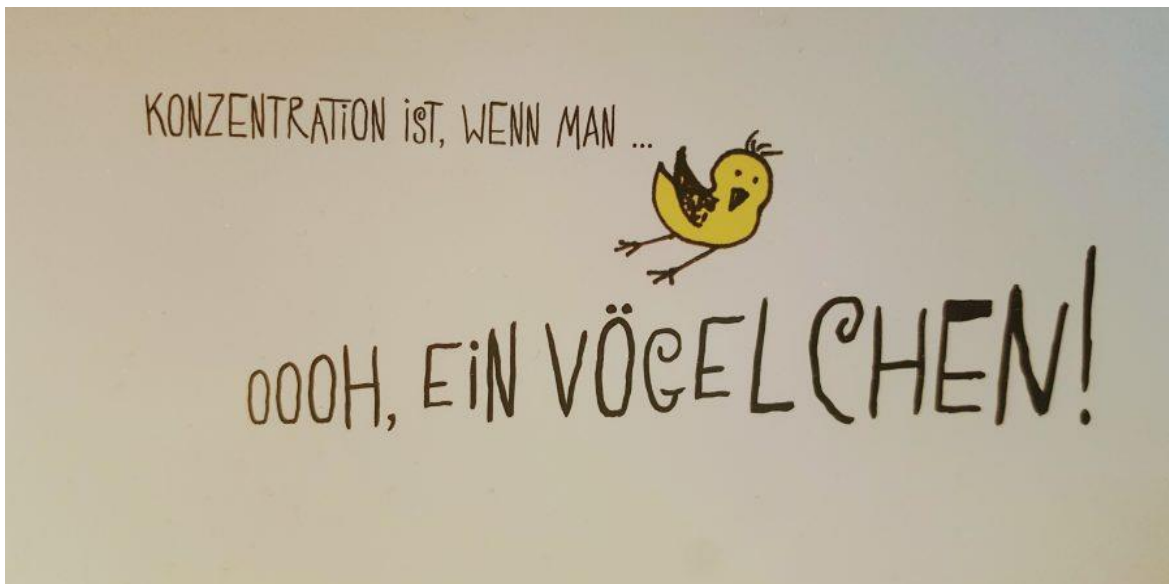 KONZENTRATION IST, WENN MAN ...
OOOH, EIN VÖGELCHEN!